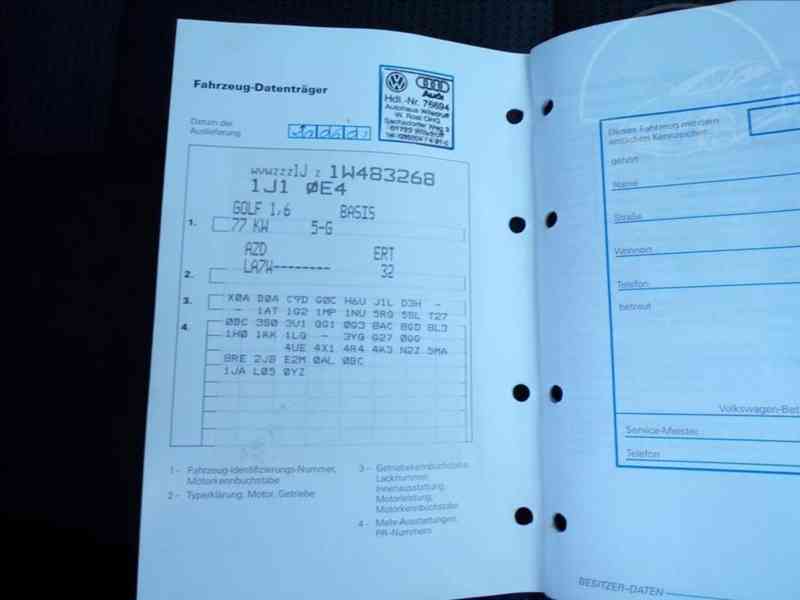 Fahrzeug-Datenträger
Audi
Hdl.-Nr. 76694
Autohaus Wilsdruff
W. Rost OHG
Sachsdorfer Weg 3
01723 Wilsdruff
Datum der
Auslieferung
WVWZZZ1J Z 1W483268
1J1 0E4
GOLF 1,6 BASIS
1. 77 KW 5-G
AZD ERT
2. LA7W-------- 32
3. X0A B0A C9D G0C H6U J1L D3H -
- 1AT 1G2 1MP 1NU 5RQ 5SL T27
4. 0BC 3S0 3U1 QG1 0G3 8AC 8GD 8L3
1H0 1KK 1LQ - 3YG G27 0GG
4UE 4X1 4R4 4K3 N2Z 5MA
8RE 2JB E2M 0AL 0BC
1JA L05 0YZ
1 - Fahrzeug-Identifizierungs-Nummer,
Motorkennbuchstabe
2 - Typerklärung, Motor, Getriebe
3 - Getriebekennbuchstabe,
Lacknummer,
Innenausstattung,
Motorleistung,
Motorkennbuchstabe
4 - Mehr-Ausstattungen,
PR-Nummern
Dieses Fahrzeug mit dem
amtlichen Kennzeichen
gehört
Name
Straße
Wohnort
Telefon
betreut
Volkswagen-Bet
Service-Meister
Telefon
BESITZER-DATEN